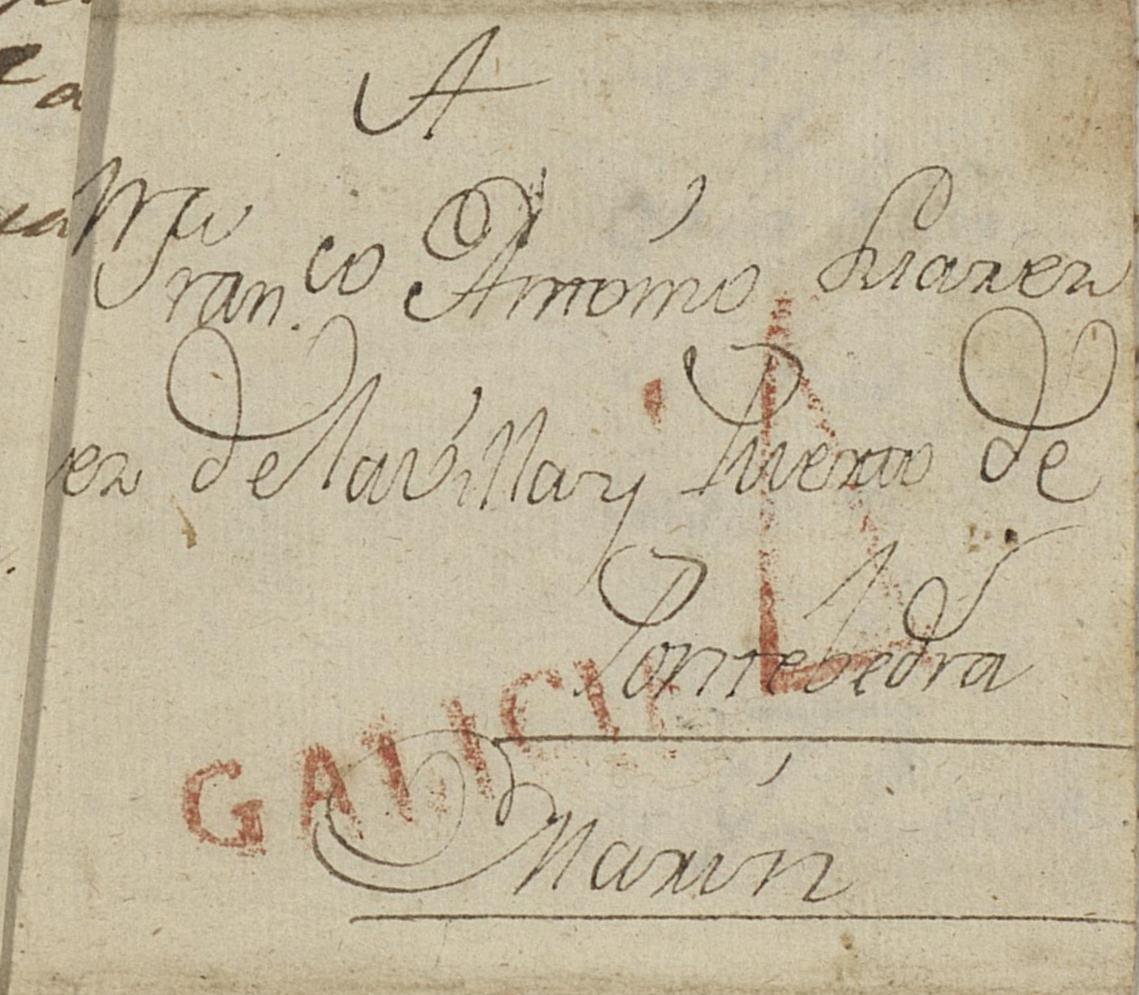 A
Fran.co Antonio Suarez
ez de lavilla y Puerto de
Pontebedra
GALICIA
Marin